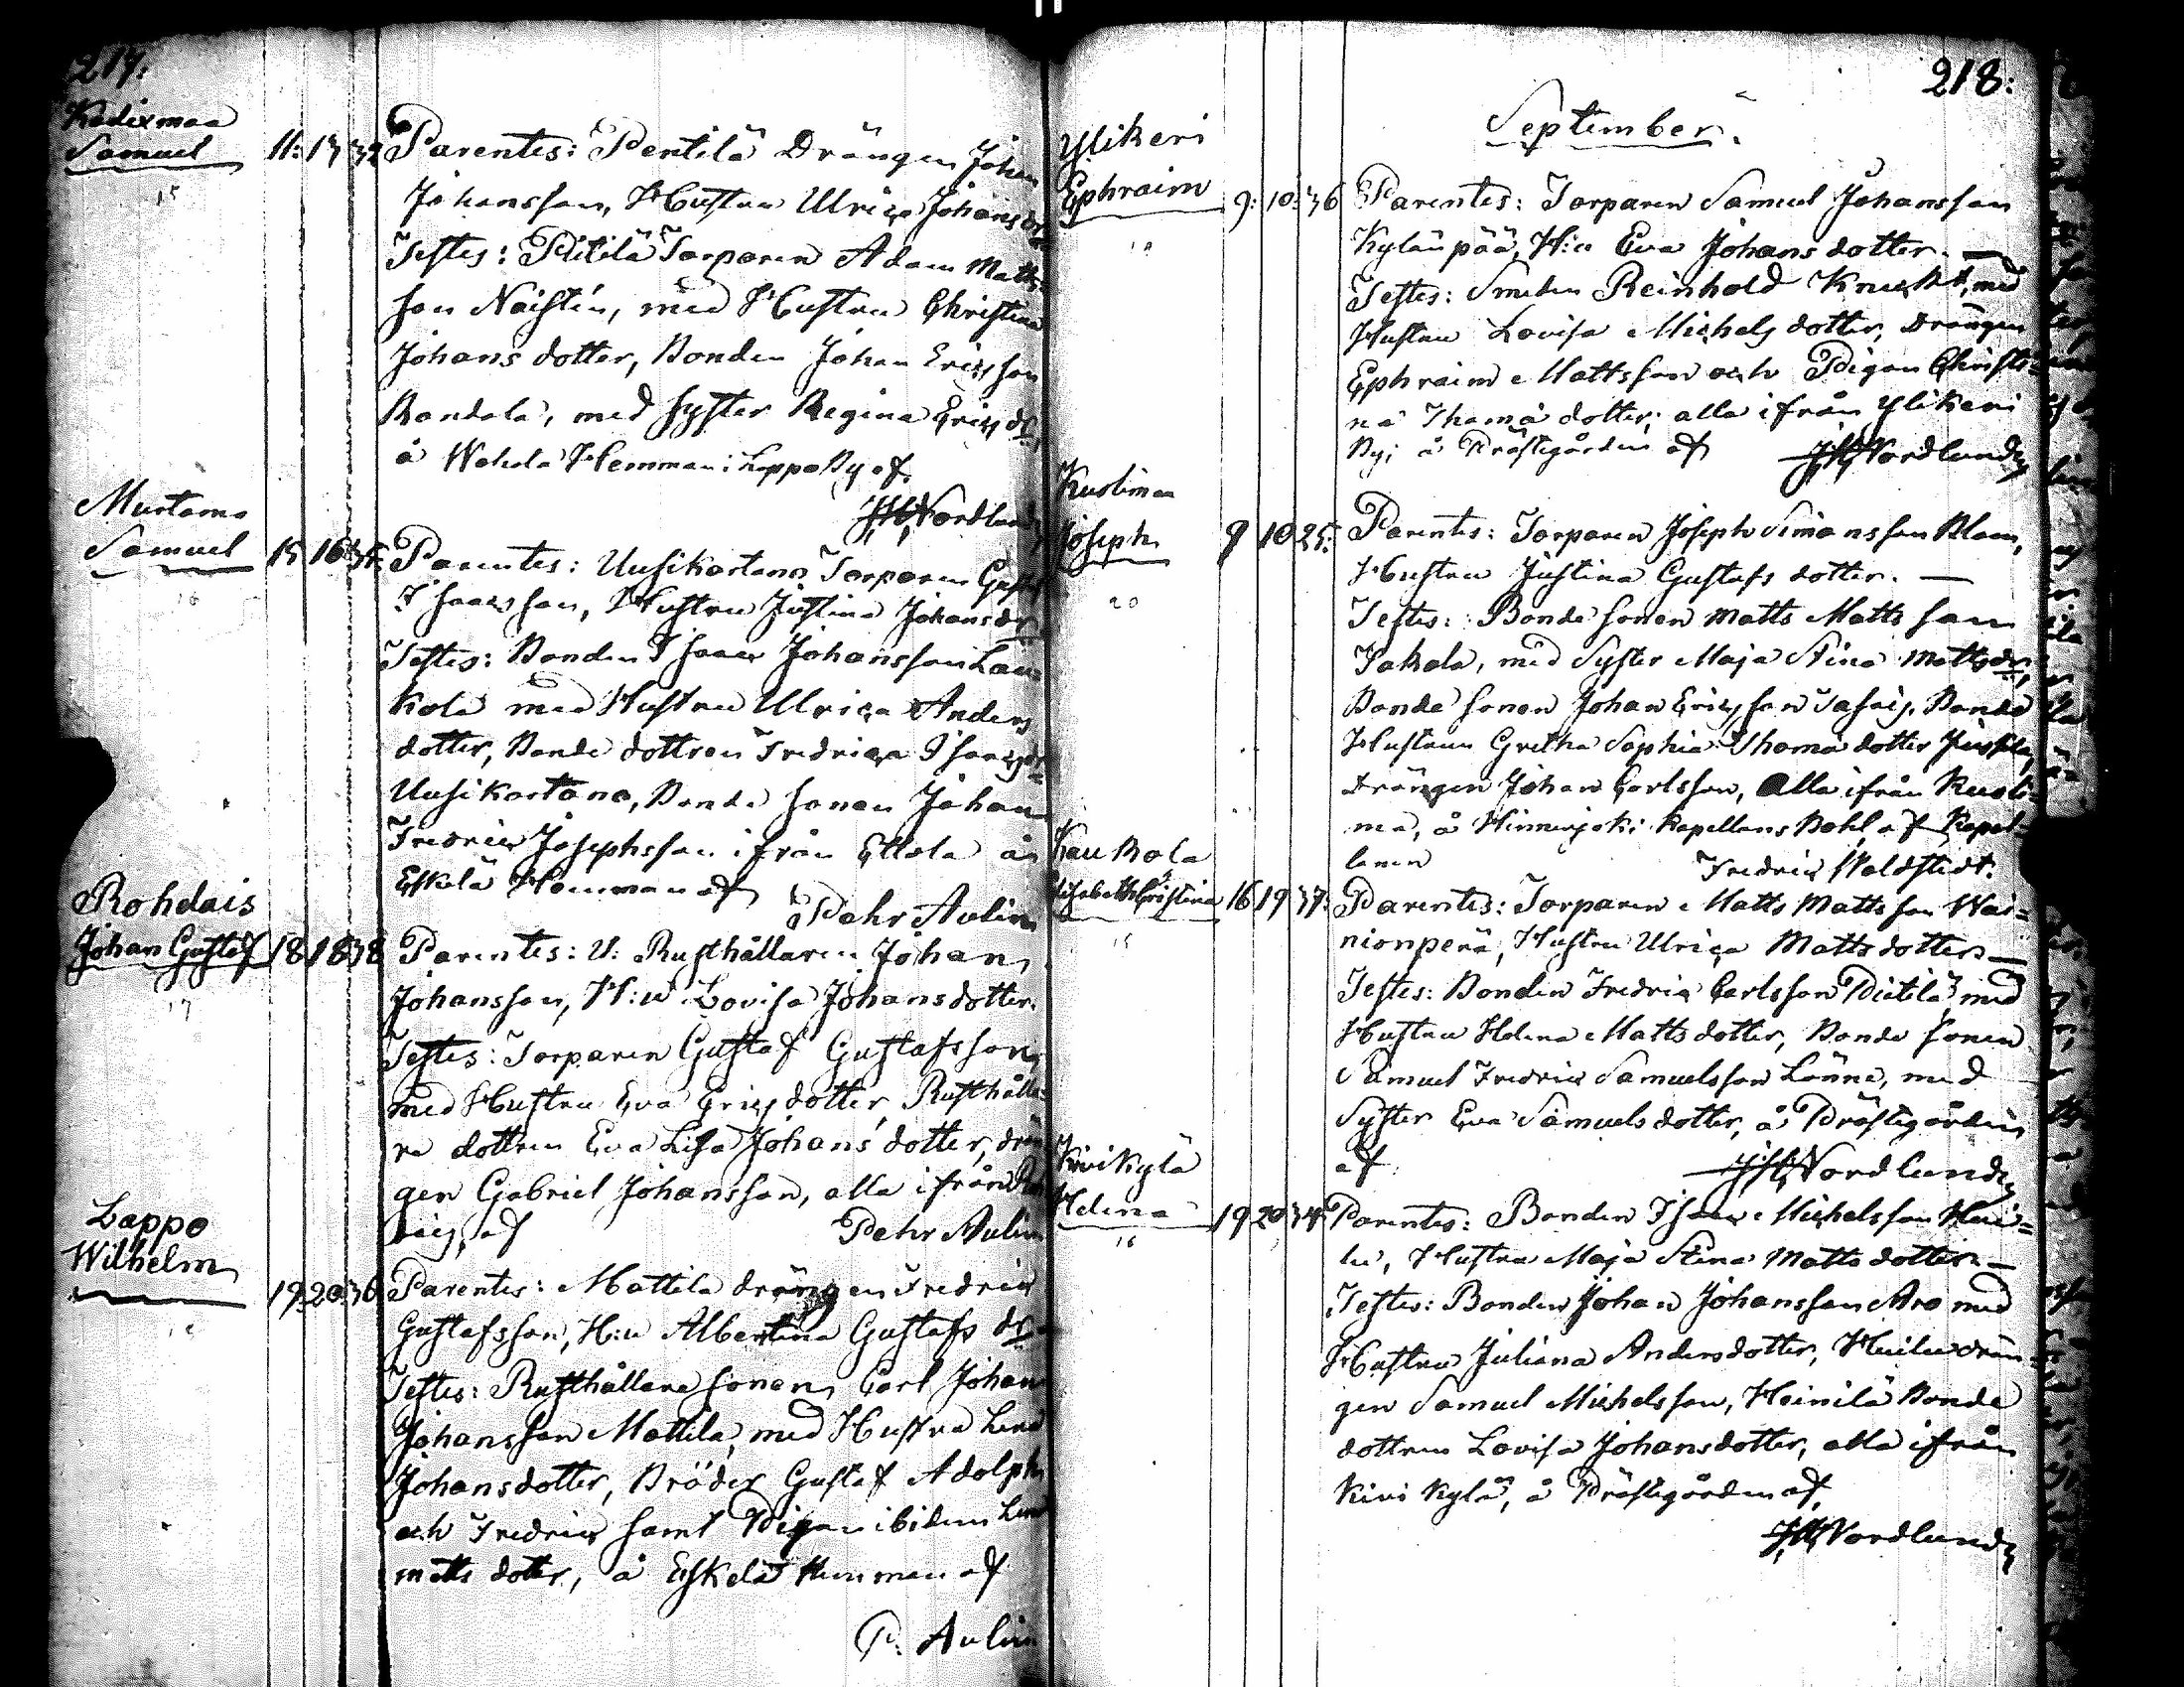 217:
Kadixmaa
Samuel 11: 13 32 Parentes: Pentilä Drängen Johan
15
Johansson, Hustrun Ulrica Johans dr
Testes: Pitilä Torparen Adam Matts
son Naistén, med Hustru Christina
Johans dotter, Bonden Johan Ericsson
Randala, med syster Regina Erics dr
å Wahala Hemman i Lappo By af
JH Nordlund
Murtamo
Samuel 15 16 35 Parentes: Uusikartano Torparen Gustaf
16
Isaacsson, Hustru Justina Johans dr
Testes: Bonden Isaac Johansson Lau=
kola med Hustru Ulrica Anders
dotter, Bonde dottren Fredrica Isaacs dr
Uusikartano, Bonde sonen Johan
Fredric Josephsson ifrån Ellola å
Eskelä Hemman af
Pehr Aulin
Rohdais
Johan Gustaf 18 18 38 Parentes: U: Rusthållaren Johan
17
Johansson, H:u Lovisa Johansdotter.
Testes: Torparen Gustaf Gustafsson
med Hustru Eva Erics dotter, Rusthålla=
re dottren Eva Lisa Johans dotter, drän
gen Gabriel Johansson, alla ifrån
af Pehr Aulin
Lappo
Wilhelm 19: 20: 36 Parentes: Mattila drängen Fredric
18
Gustafsson, H:u Albertina Gustafs dr
Testes: Rusthållare sonen Carl Johan
Johansson Mattila, med Hustru Lena
Johansdotter, Bröder Gustaf Adolph
och Fredric samt Pigan ibidem Lena
Matts dotter, å Eskelä Hemman af
P. Aulin
218:
September.
Ylikeri
Ephraim 9: 10: 36 Parentes: Torparen Samuel Johansson
19
Kylänpää, H:u Eva Johans dotter. —
Testes: Smeden Reinhold Knecht, med
Hustru Lovisa Michels dotter, Drängen
Ephraim Mattsson och Pigan Christi=
na Thomä dotter; alla ifrån Ylikeri
By; å Prästegården af JH Nordlund
Kuolimaa
Joseph 9 10 25: Parentes: Torparen Joseph Simonsson Blom,
20
Hustru Justina Gustafs dotter. —
Testes: Bonde sonen Matts Matts son
Jakola, med Syster Maja Stina Matts dr,
Bonde sonen Johan Ericsson Bonde
Hustrun Gretha Sophia Thomä dotter Jussila,
Drängen Johan Carlsson, Alla ifrån Kuoli=
ma, å Hinnerjoki Kapellans Bohl af Kapel=
lanen Fredric Waldstedt.
Kaukola
Elisabeth Christina 16 19 37: Parentes: Torparen Matts Mattsson Wai=
15
nionperä, Hustru Ulrica Matts dotter. —
Testes: Bonden Fredric Carlsson Pietilä med
Hustru Helena Matts dotter, Bonde sonen
Samuel Fredric Samuelsson Länne, med
Syster Eva Samuels dotter, å Prästegården
af JH Nordlund
Kivikylä
Helena 19 20 34 Parentes: Bonden Isaac Michelsson Hei=
16
lu, Hustru Maja Stina Matts dotter. —
Testes: Bonden Johan Johansson Aro med
Hustru Juliana Andersdotter, Heilu drän=
gen Samuel Michelsson, Heinilä Bonde
dottren Lovisa Johansdotter, alla ifrån
Kivi Kylä, å Prästegården af
JH Nordlund